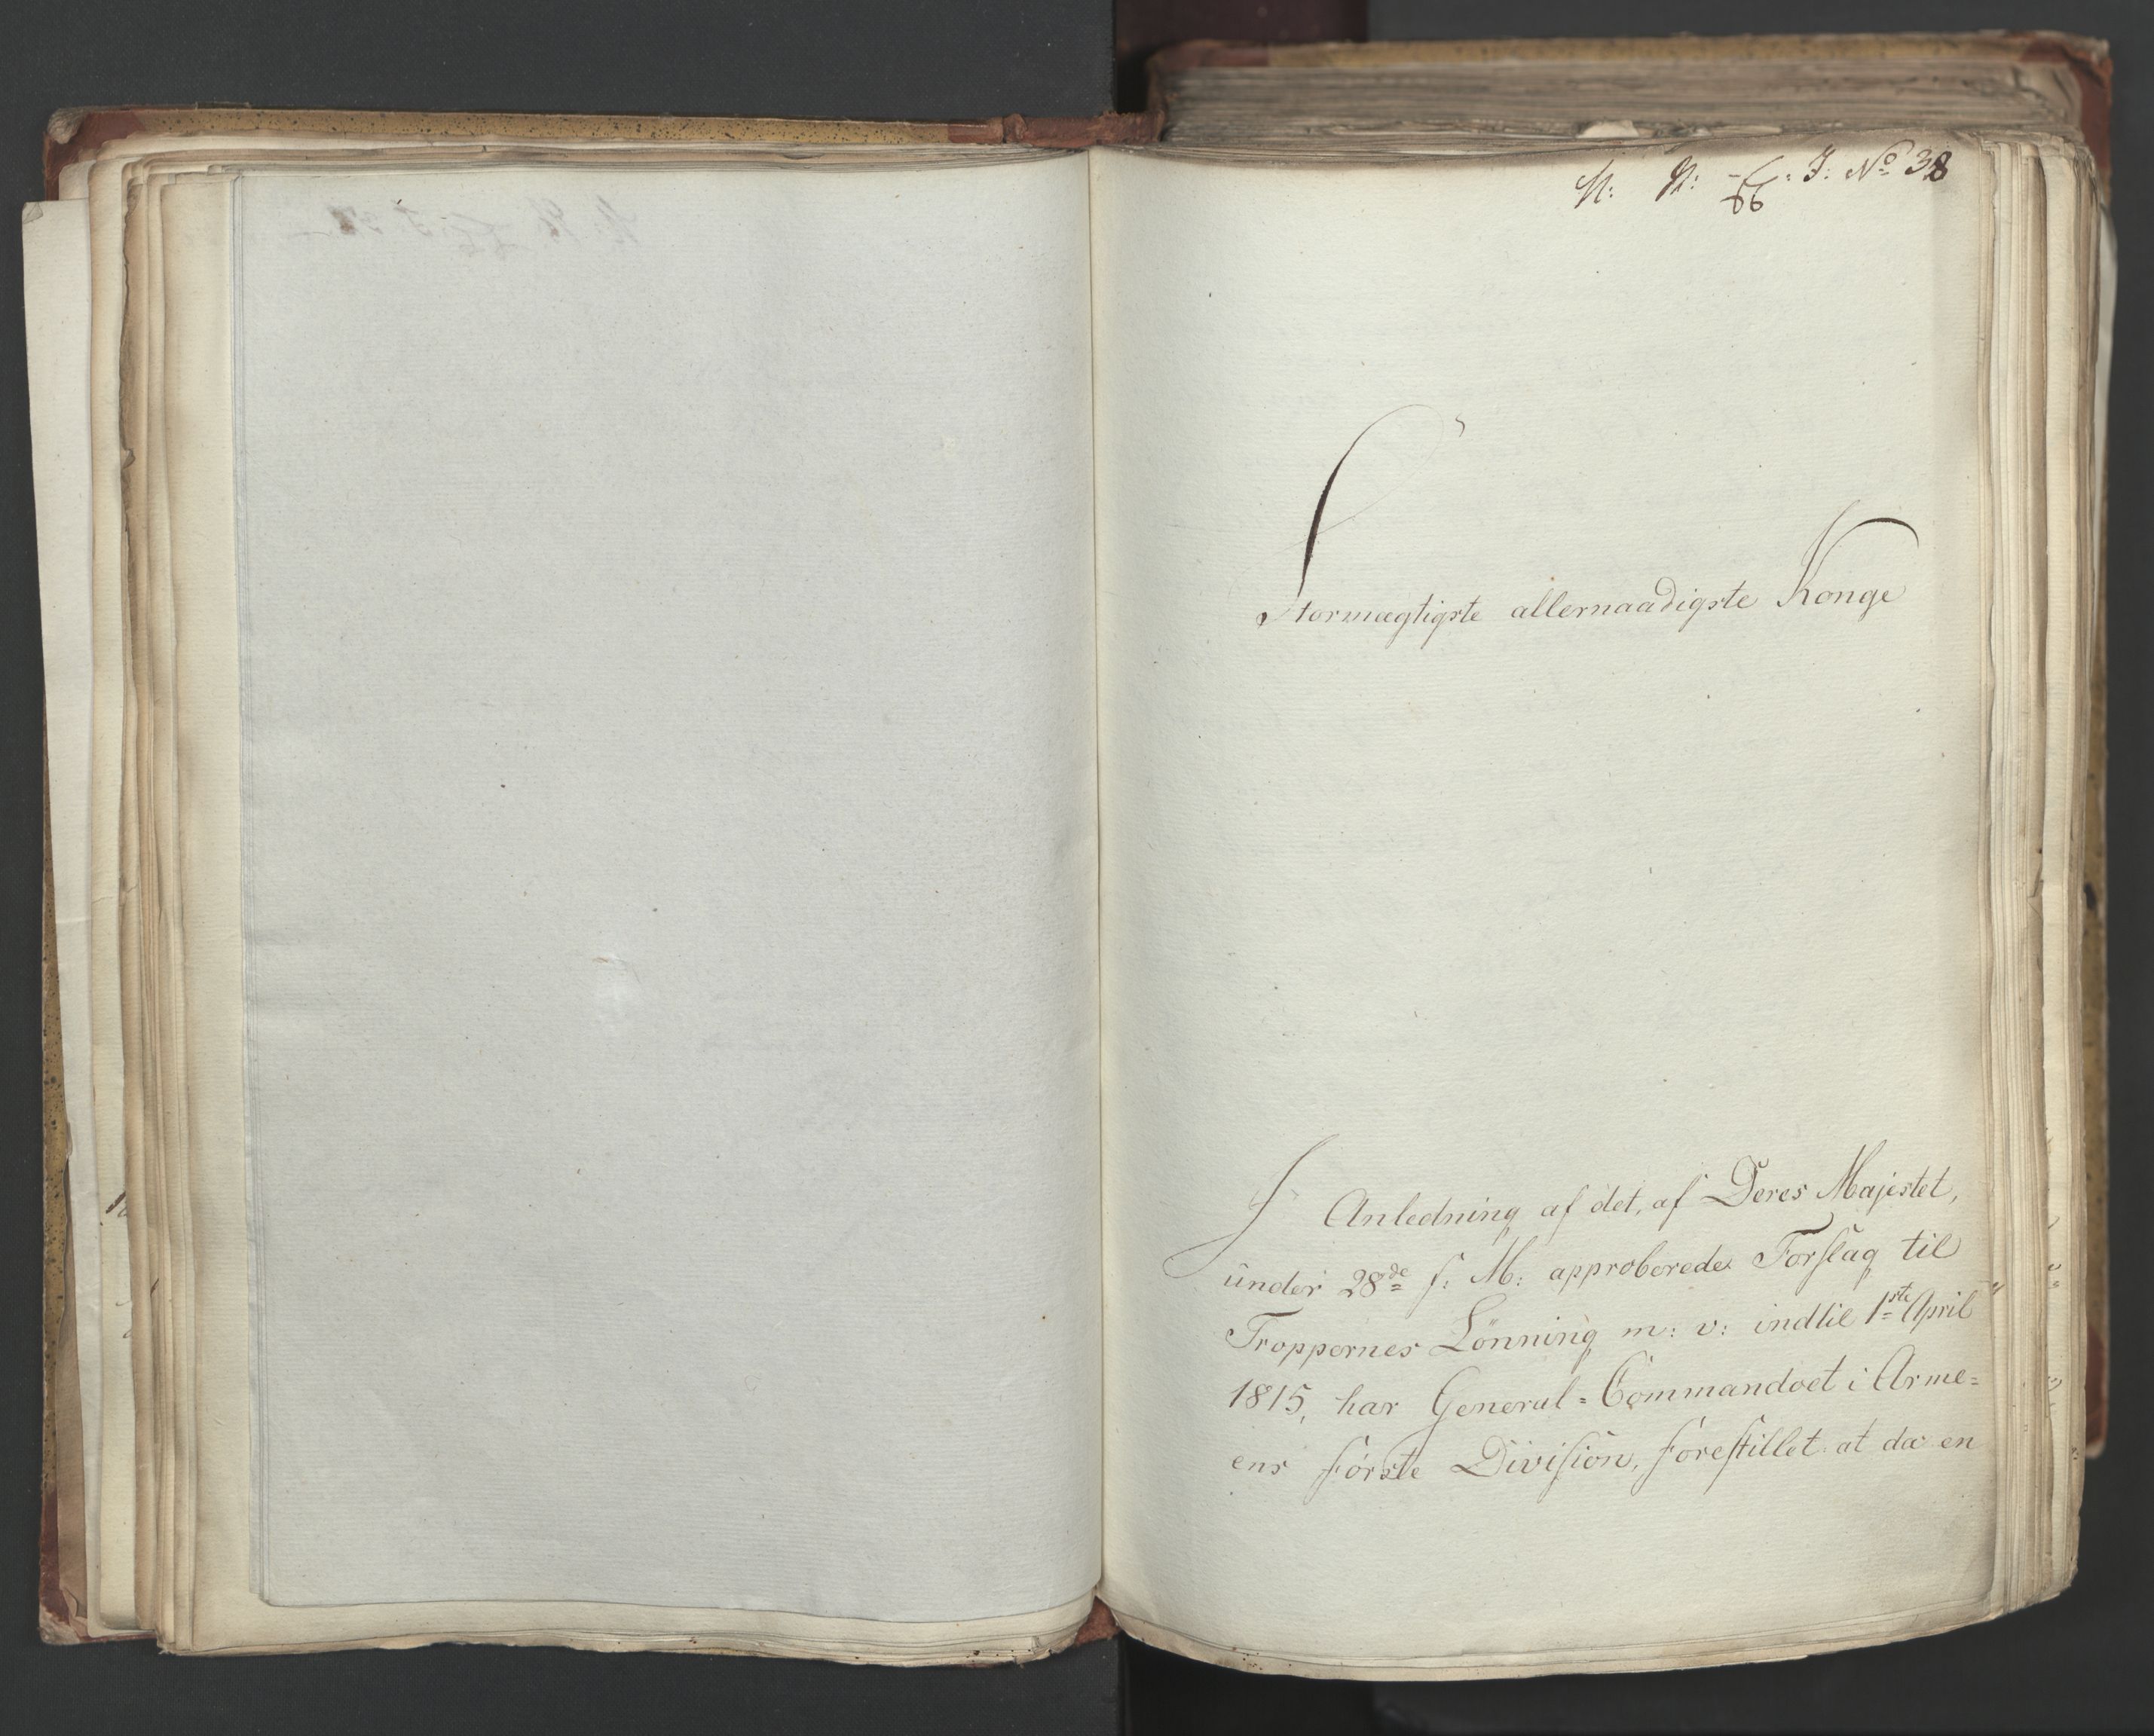 J: No 38
Stormægtigste allernaadigste Konge
I Anledning af det, af Deres Majestet,
under 28de f: M: approberede Forslag til
Troppernes Lönning m: v: indtil 1ste April
1815, har General=Commandoet i Arme=
ens første Division, forestillet: at da en